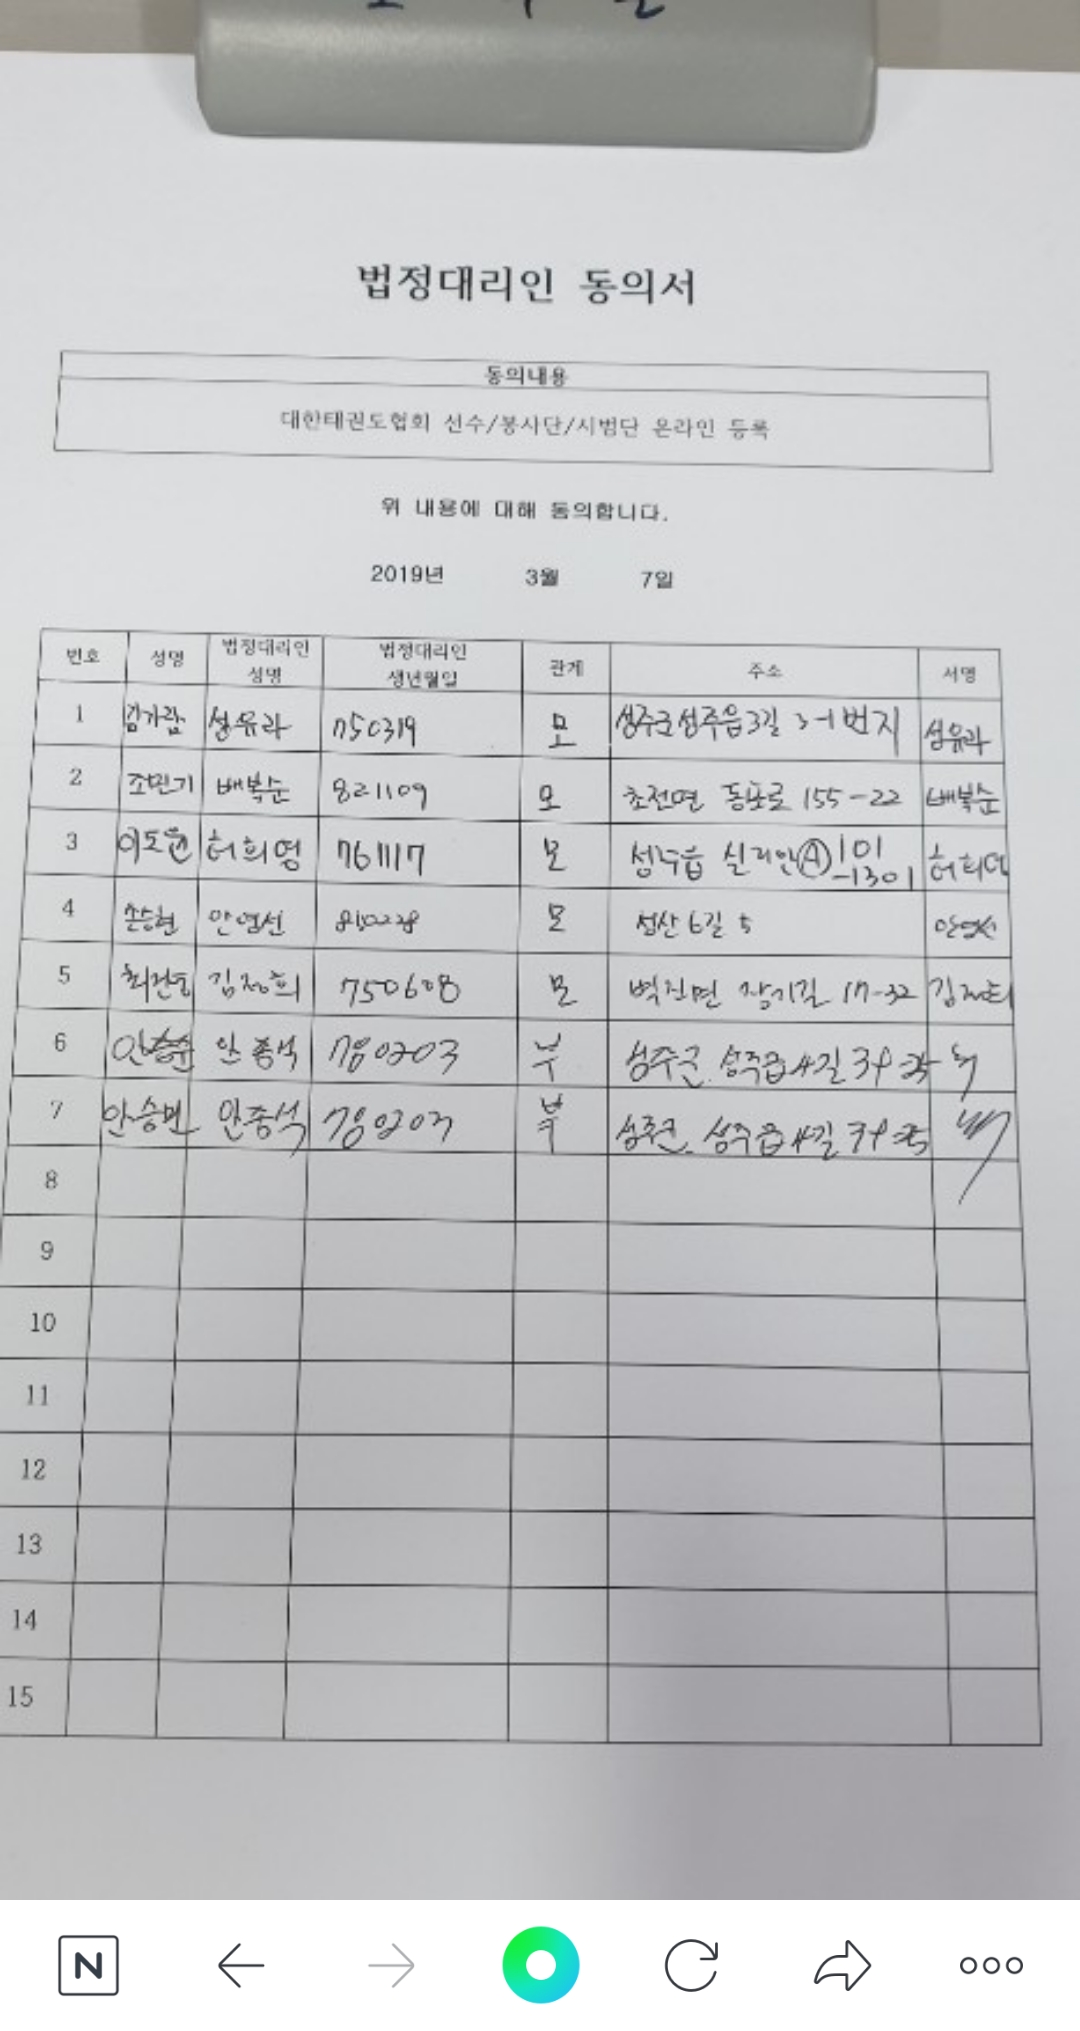 법정대리인 동의서
동의내용
대한태권도협회 선수/봉사단/시범단 온라인 등록
위 내용에 대해 동의합니다.
2019년 3월 7일
번호 성명 법정대리인 성명 법정대리인 생년월일 관계 주소 서명
1 김가람 성유라 750319 모 성주군 성주읍 3길 3-1번지 성유라
2 조민기 배복순 821109 모 초전면 동포로 155-22 배복순
3 이도윤 허희영 761117 모 성주읍 실리안Ⓐ 101-1301 허희영
4 손승현 안영선 모 성산 6길 5 안영선
5 김정희 750608 모 벽진면 장기길 17-32 김정희
6 안종석 780203 부 성주군 성주읍 4길
7 안승민 안종석 780203 부 성주군 성주읍 4길
8
9
10
11
12
13
14
15
N